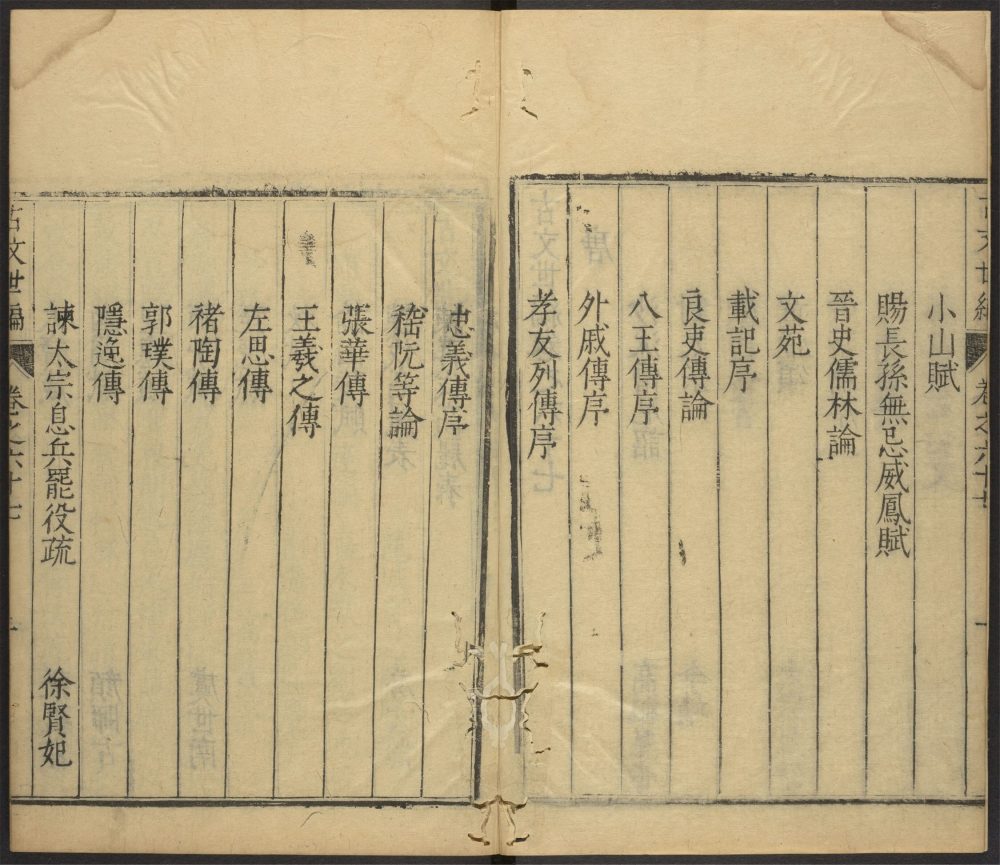 古文世編 卷之六十七 一
小山賦
賜長孫無忌威鳳賦
晉史儒林論
文苑
載記序
良吏傳論
八王傳序
外戚傳序
孝友列傳序
忠義傳序
嵇阮等論
張華傳
王羲之傳
左思傳
褚陶傳
郭璞傳
隱逸傳
諫太宗息兵罷役疏 徐賢妃
古文世編 卷之六十七